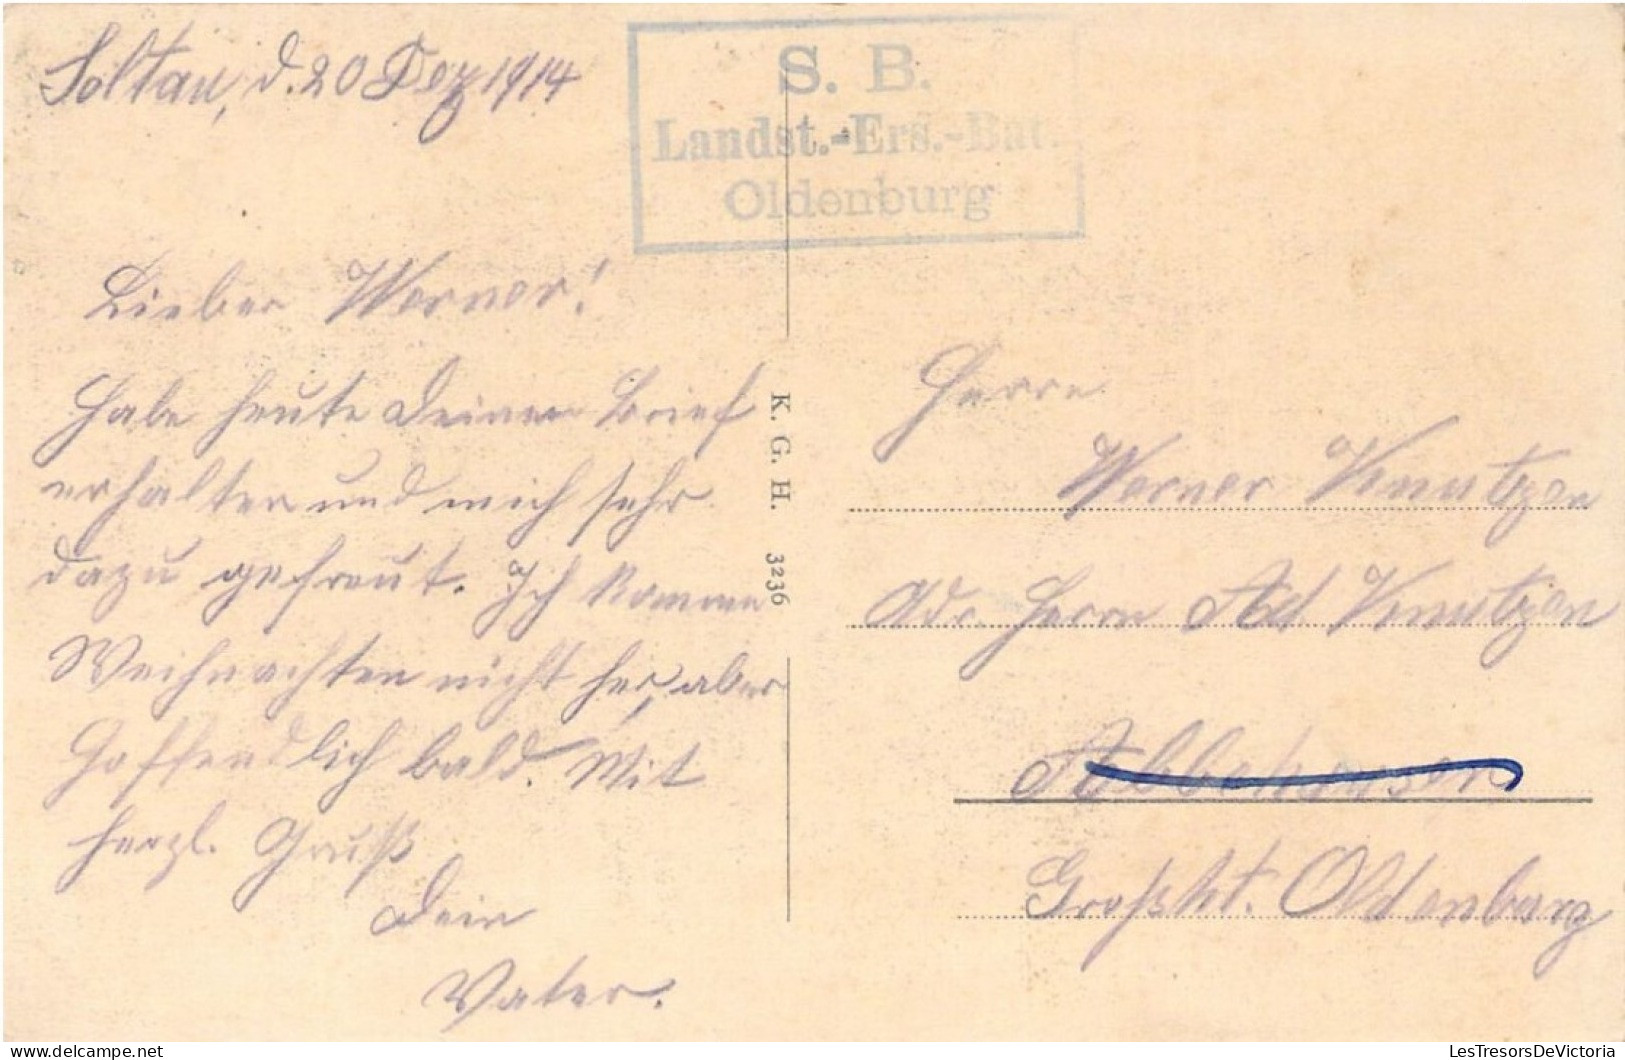 Soltau, d. 20 Dez 1914
S. B.
Landst.-Ers.-Bat.
Oldenburg
Lieber Werner!
Habe heute Deinen Brief
erhalten und mich sehr
dazu gefreut. Ich komme
Weihnachten nicht her, aber
hoffendlich bald. Mit
herzl. Gruß
Dein
Vater.
K. G. H. 3236
Herrn
Werner Knutzen
Adr. Herrn Ad. Knutzen
Abbehausen
Großhzt. Oldenburg
LesTresorsDeVictoria.com
LesTresorsDeVictoria